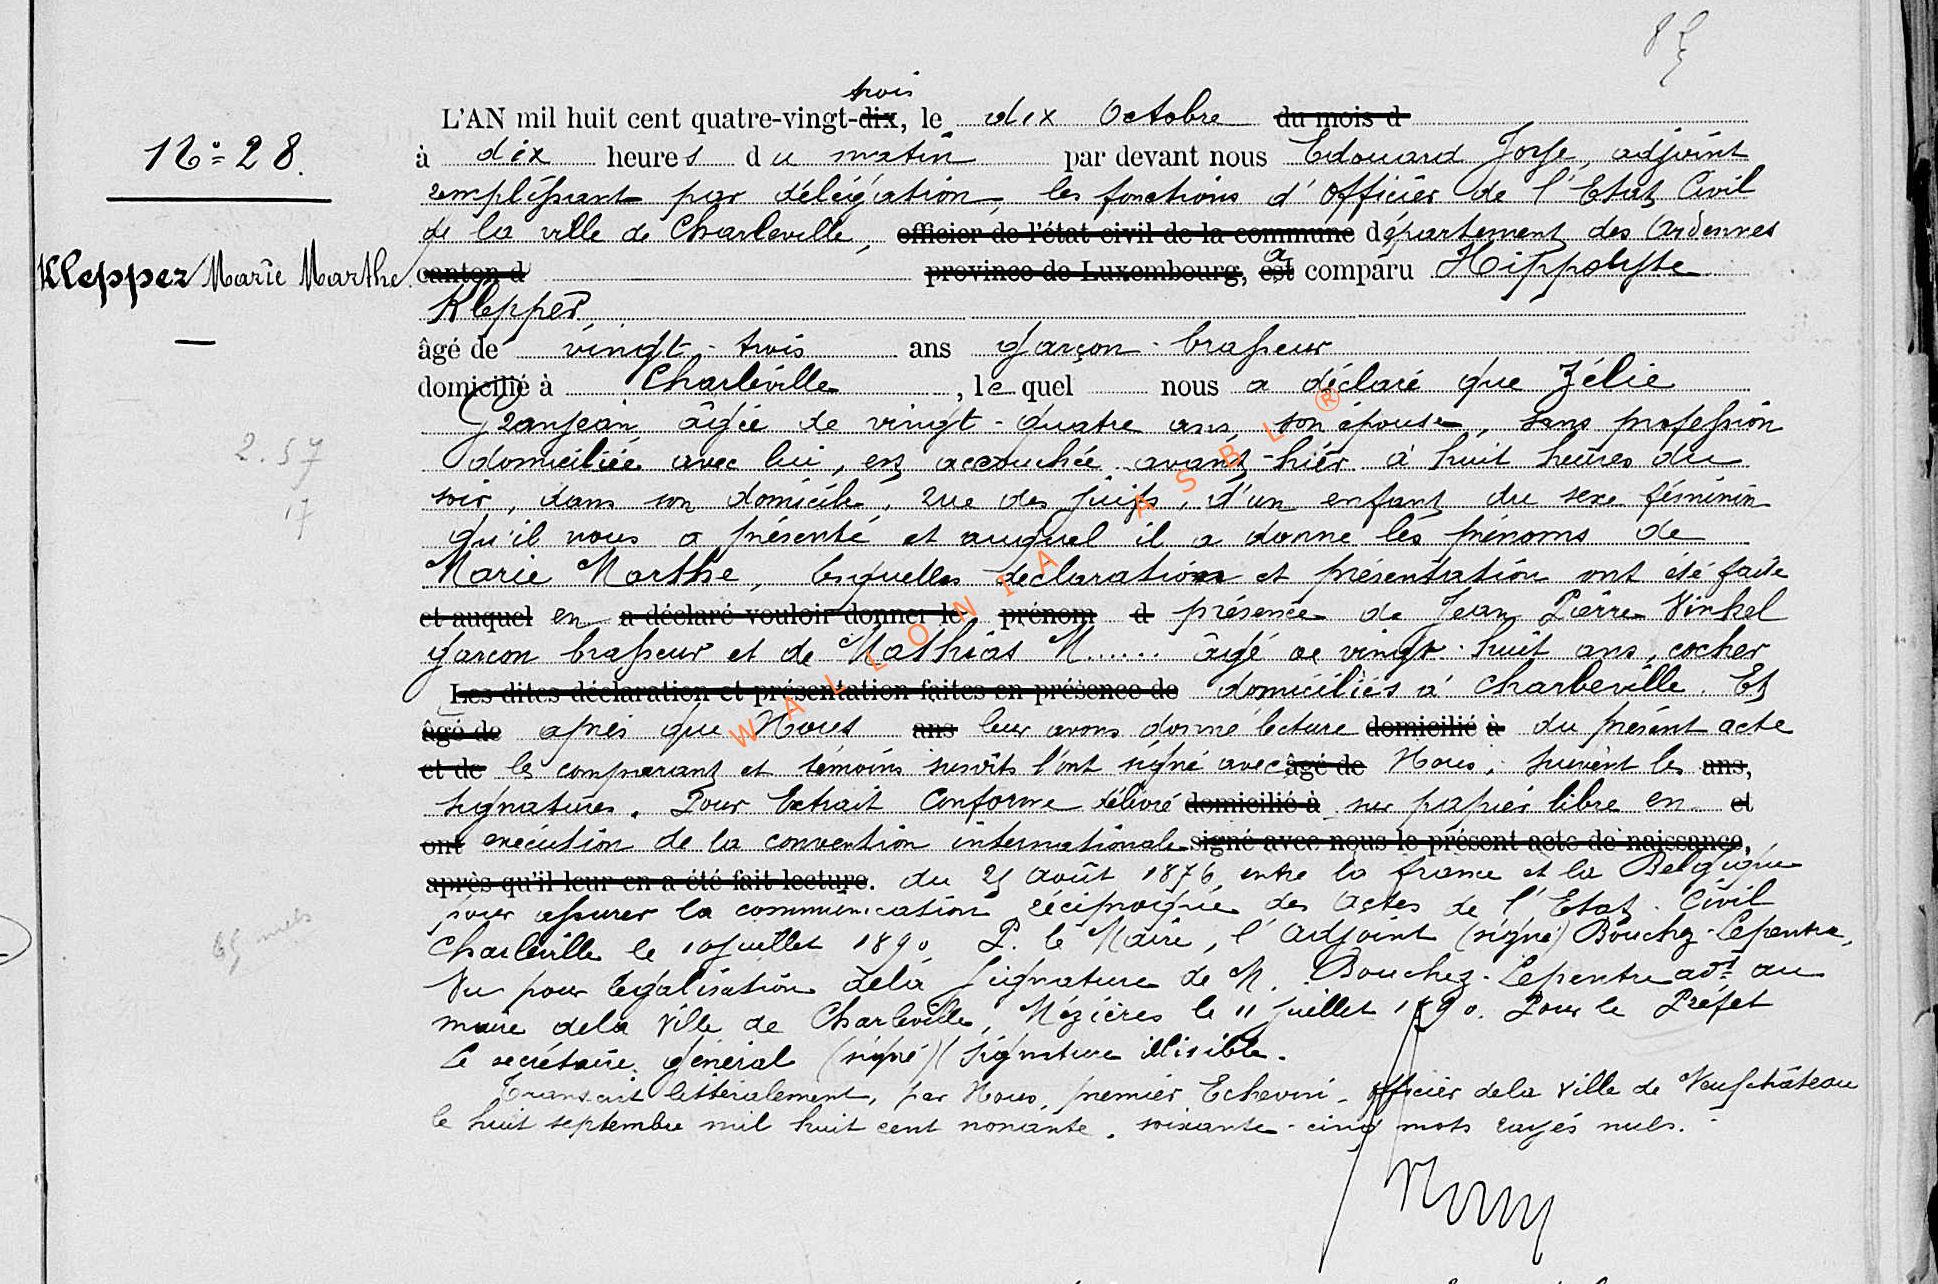 85
trois
L'AN mil huit cent quatre-vingt-dix, le dix Octobre du mois d
N° 28.
à dix heures du matin par devant nous Edouard adjoint
remplissant par délégation, les fonctions d'officier de l'Etat Civil
de la ville de Charleville, officier de l'état civil de la commune département des Ardennes
Klepper Marie Marthe.
canton d province de Luxembourg, est a comparu Hippolyte
Klepper,
âgé de vingt-trois ans garçon-brasseur
domicilié à Charleville, lequel nous a déclaré que Zélie
Granjean âgée de vingt-quatre ans, son épouse, sans profession
domiciliée avec lui, est accouchée avant-hier à huit heures du
2.57
soir, dans son domicile, rue des juifs, d'un enfant du sexe féminin
17
qu'il nous a présenté et auquel il a donné les prénoms de
Marie Marthe, lesquelles déclaration et présentation ont été faite
et auquel en a déclaré vouloir donner le prénom d présence de Jean Pierre Vinkel
garçon brasseur et de Mathias M...... âgé de vingt-huit ans, cocher
Les dites déclaration et présentation faites en présence de domiciliés à Charleville. Et
âgé de après que Nous ans leur avons donné lecture domicilié à du présent acte
et de les comparant et témoins susdits l'ont signé avec âgé de Nous, suivent les ans,
signatures. Pour Extrait Conforme délivré domicilié à sur papier libre en et
ont exécution de la convention internationale signé avec nous le présent acte de naissance,
après qu'il leur en a été fait lecture. du 25 Août 1876 entre la france et la Belgique
pour assurer la communication réciproque des actes de l'Etat-Civil
65 nuls
Charleville le 10 juillet 1890 P. le Maire, l'adjoint (signé) Bouchez-Lepentre,
Vu pour légalisation dela signature de M. Bouchez-Lepentre adt au
maire dela Ville de Charleville, Mézières le 11 juillet 1890. Pour le Préfet
Le secrétaire général (signé) (signature illisible.
Transcrit littéralement, par Nous, premier Echevin, officier dela Ville de Neufchâteau
le huit septembre mil huit cent nonante. soixante-cinq mots rayés nuls.
WALLONIA ASBL ®